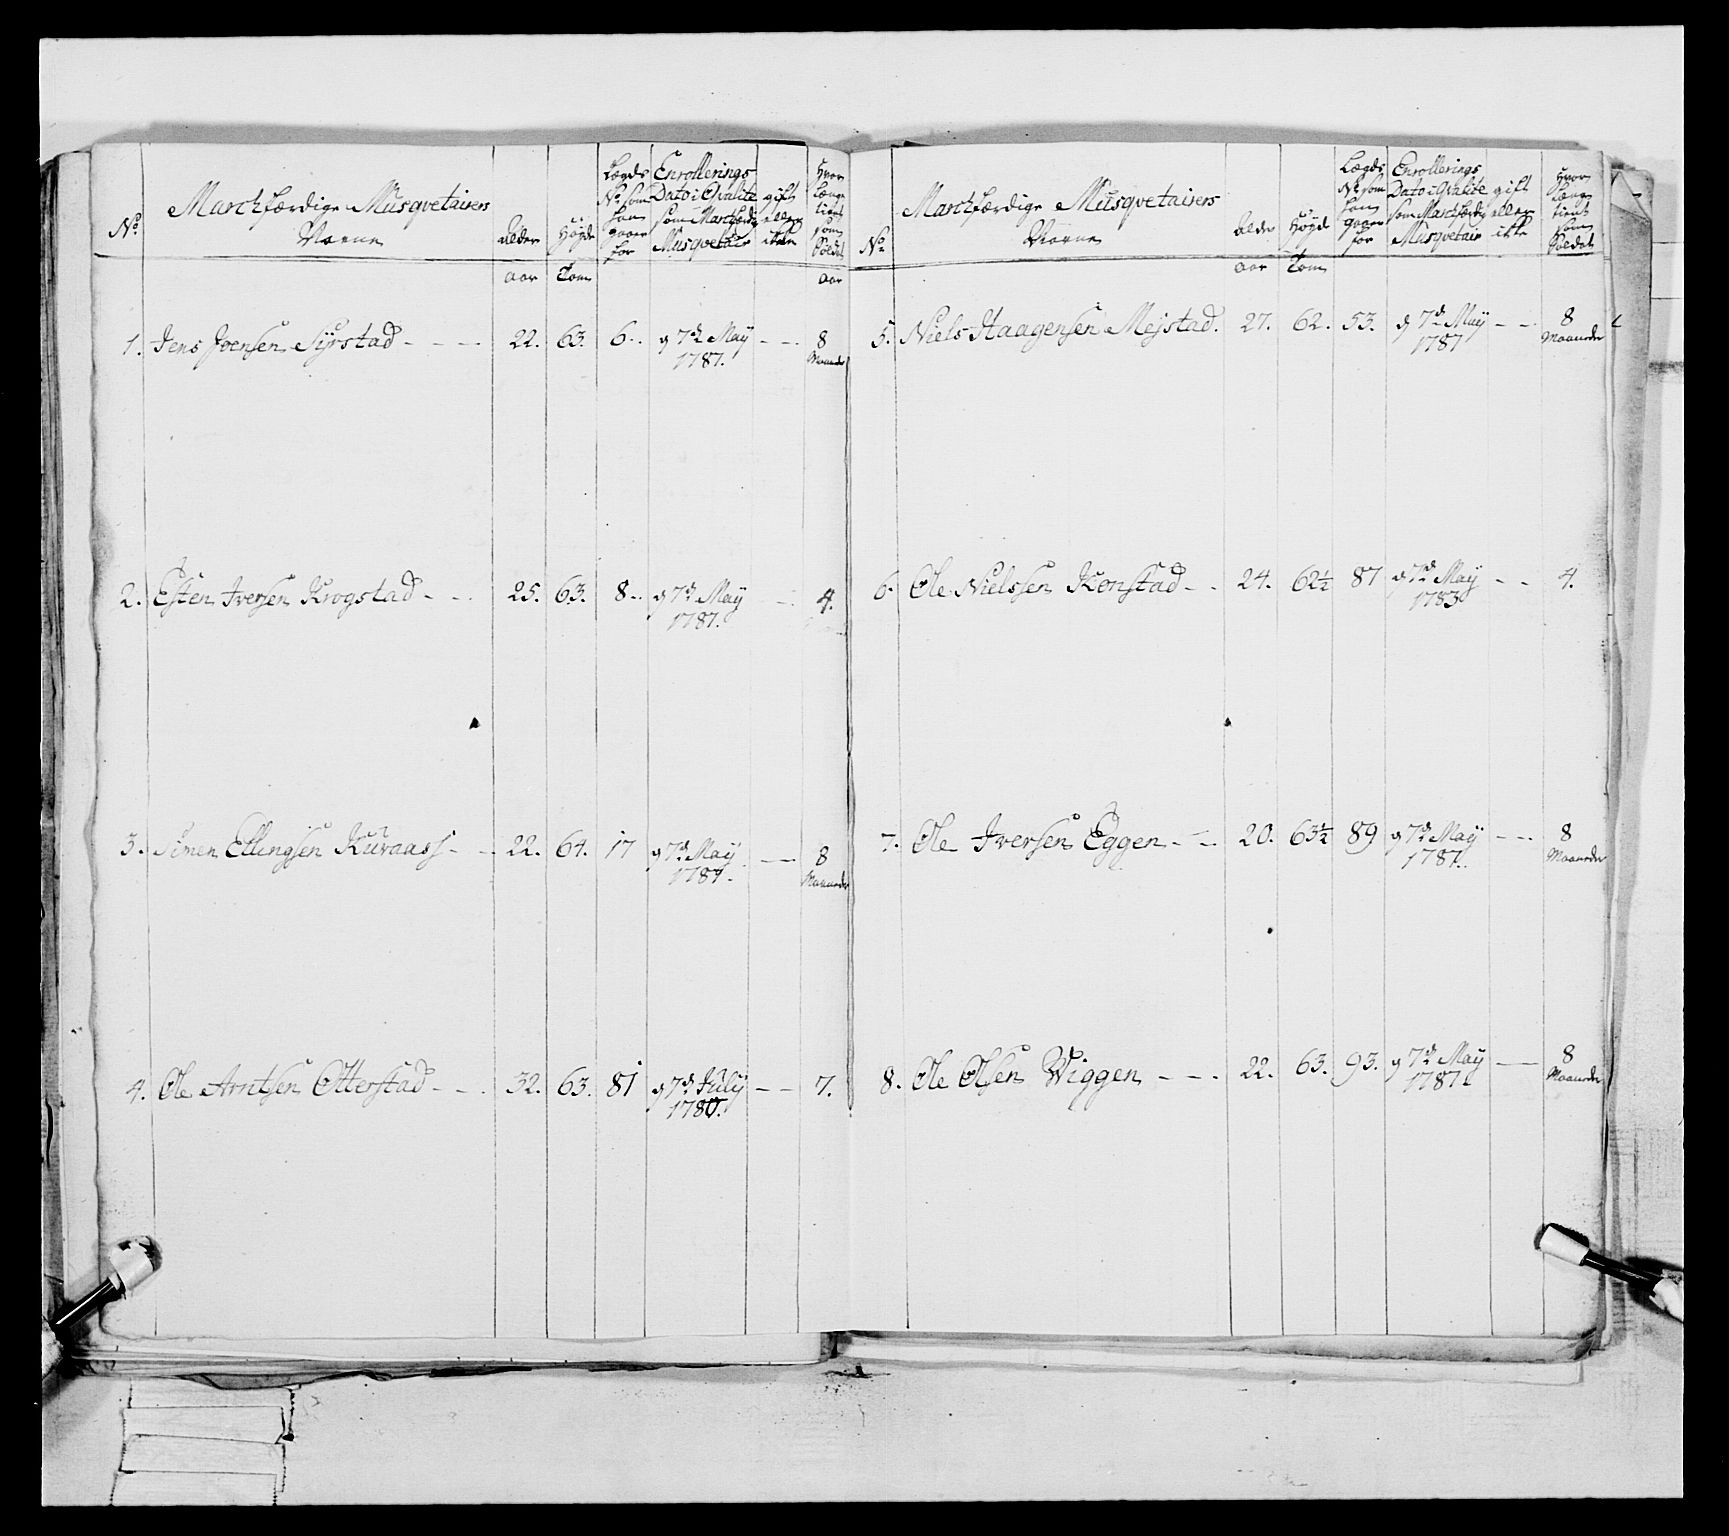 No. Marchfærdige Musqvetairers Navne Alder Høyde Lægds No. som han gaaer for Enrollerings Dato i Qvalite som Marchfærdig Musqvetair gift eller ikke Hvor Længe tient som Soldat
Aar Tom Aar
1. Jens Joensen Syrstad - - - 22. 63. 6.. d 7de May 1787. - - - 8 Maaneder
2. Esten Iversen Krogstad - - - 25. 63. 8.. d 7de May 1787. - - 4.
3. Simen Ellingsen Kuraass - - 22. 64. 17 d 7de May 1787. - - - 8 Maaneder
4. Ole Arntsen Otterstad - - - 32. 63. 81 d 7de July 1780. - - 7.
No. Marchfærdige Musqvetairers Navne Alder Høyde Lægds No. som han gaaer for Enrollerings Dato i Qvalite som Marchfærdig Musqvetair gift eller ikke Hvor Længe tient som Soldat
Aar Tom
5. Niels Haagensen Mejstad. 27. 62. 53. d 7de May 1787 - - 8 Maaneder
6. Ole Nielssen Konstad - - 24. 62½ 87 d 7de May 1783 - - 4.
7. Ole Iversen Eggen - - 20. 63½ 89 d 7de May 1787. - - 8 Maaneder
8. Ole Olsen Wiggen - - - 22. 63. 93. d 7de May 1787 - - 8 Maaneder